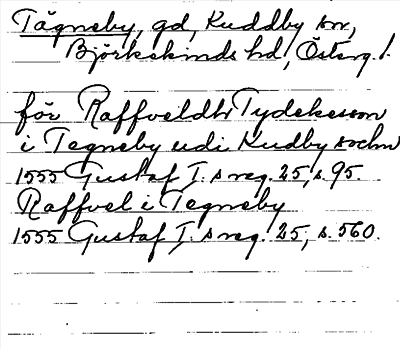 Tägneby, gd, Kuddby sn,
Björkekinds hd, Österg. l.
för Raffveldtr Tydekesson
i Tegneby udi Kudby sochn
1555 Gustaf I:s reg. 25, s. 95.
Raffvel i Tegneby
1555 Gustaf I:s reg. 25, s. 560.